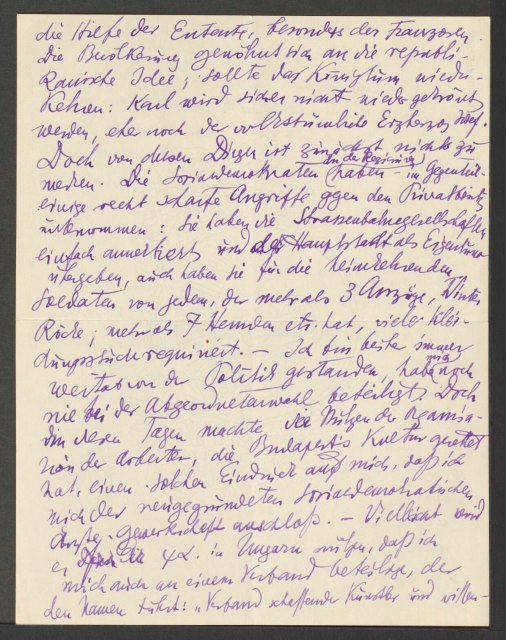 die Hilfe der Entente, besonders der Franzosen.
Die Bevölkerung gewöhnt sich an die republi-
kanische Idee; sollte das Königtum wieder-
kehren: Karl wird sicher nicht wieder gekrönt
werden, eher noch der volkstümliche Erzherzog Josef.
Doch von diesen Dingen ist zunächst nichts zu
merken. Die Sozialdemokraten (in der Regierung) haben – im Gegenteil –
einige recht scharfe Angriffe gegen den Privatbesitz
unternommen: sie haben die Strassenbahngesellschaften
einfach annektiert und der Hauptstadt als Eigentum
übergeben, auch haben sie für die heimkehrenden
Soldaten von jedem, der mehr als 3 Anzüge, Winter
Röcke; mehr als 7 Hemden etc. hat, vieler Klei-
dungsstücke requiriert. – Ich bin bisher immer
weitab von der Politik gestanden, habe mich noch
nie bei der Abgeordnetenwahl beteiligt. Doch
in diesen Tagen machte die Organisa-
tion der Arbeiter, die Budapests Kultur gerettet
hat, einen solchen Eindruck auf mich, daß ich
mich der neugegründeten sozialdemokratischen
Ärzte-Gewerkschaft anschloß. – Vielleicht wird
es in Ungarn daß ich
mich auch an einem Verband beteilige, der
den Namen führt: „Verband schaffender Künstler und wissen-